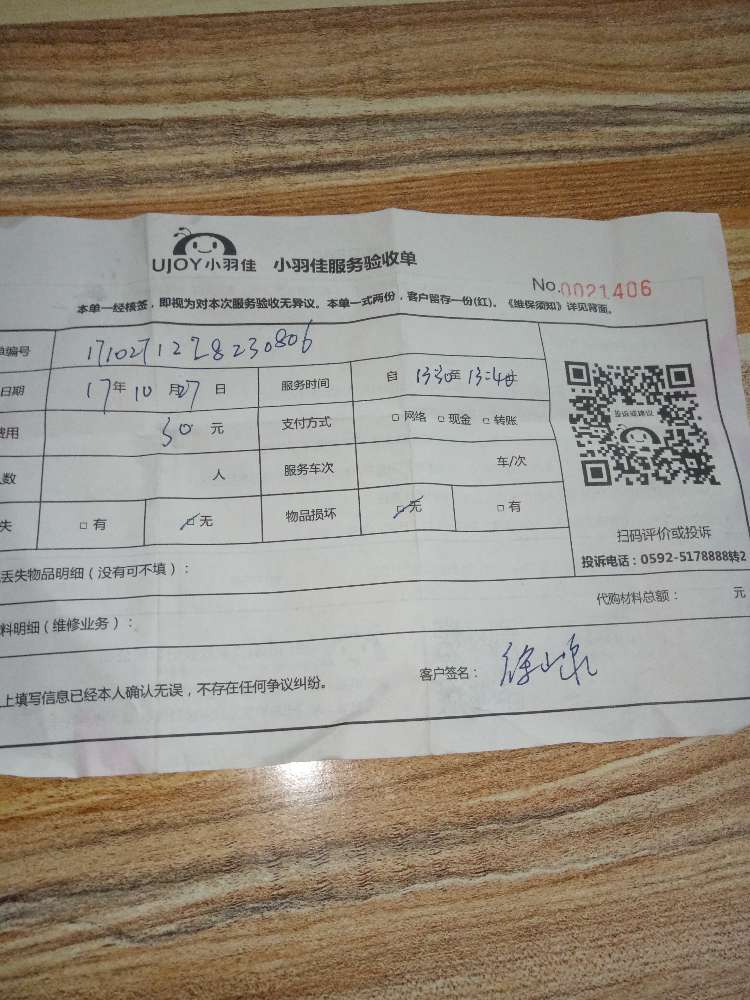 UJOY小羽佳 小羽佳服务验收单
No.0021406
本单一经核签，即视为对本次服务验收无异议。本单一式两份，客户留存一份(红)。《维保须知》详见背面。
单编号 171027128230806
日期 17年10月27日 服务时间 自 13:30至 13:40止
费用 30元 支付方式 □网络 □现金 □转账
人数 人 服务车次 车/次
失 □有 □无 物品损坏 □无 □有
投诉或建议
扫码评价或投诉
投诉电话：0592-5178888转2
丢失物品明细（没有可不填）：
料明细（维修业务）： 代购材料总额： 元
上填写信息已经本人确认无误，不存在任何争议纠纷。 客户签名：